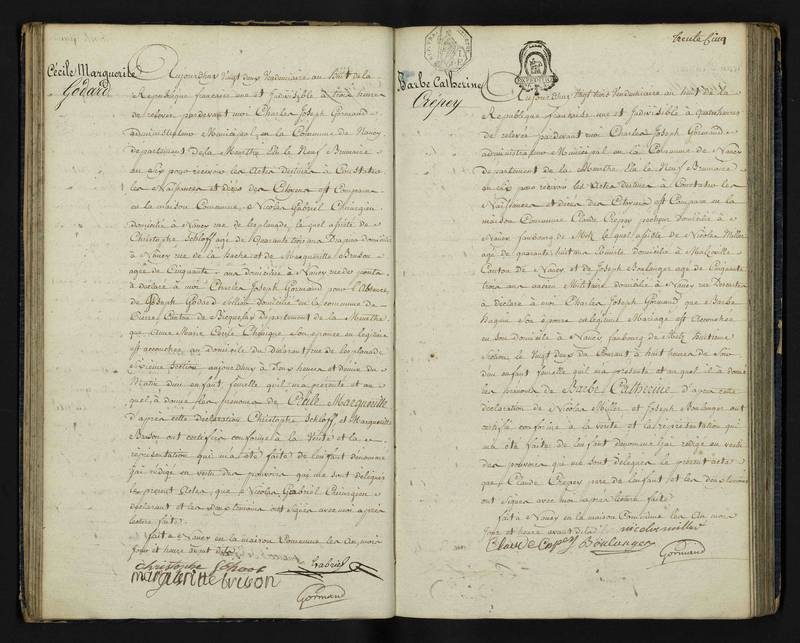 Cécile Marguerite
Godard
Aujourd'huy Vingt deux Vendemiaire au huit de la
République française une et Indivisible à trois heures
de relevée pardevant moi Charles Joseph Gormand
administrateur Municipal en la Commune de Nancy
departement de la Meurthe Elu le Neuf Brumaire
an six pour recevoir les Actes destinés à Constater
les Naissances et décès des Citoyens est Comparu
en la maison Commune Nicolas Gabriel Chirurgien
domicilié à Nancy rue de l'esplanade, lequel assisté de
Christophe Schloff agé de Quarante trois ans Drapier domicilié
à Nancy rue de la hache et de Marguerite Busson
agée de Cinquante ans domiciliée à Nancy rue des ponts
à déclaré à moi Charles Joseph Gormand pour l'Absence
de Joseph Godard domicilié en la commune de
Pierre Canton de Departement de la Meurthe
que Anne Marie son épouse en legitime
est accouchée au domicile du déclarant rue de l'esplanade
Section aujourd'huy à Deux heures et demie du
Matin d'un enfant femelle qu'il m'a presenté et au
quel à donné les prenoms de Cécile Marguerite
d'après cette déclaration Christophe Schloff et Marguerite
Busson ont certifié conforme à la Verité et la
représentation qui m'a été faite de l'enfant denommé
j'ai rédigé en vertu des pouvoirs qui me sont délégués
le present Acte que Nicolas Gabriel Chirurgien
déclarant et les deux temoins ont signés avec moi après
lecture faite.
Fait à Nancy en la maison Commune les An mois
Jour et heure avant dits
christophe
Gabriel
marguerite
Gormand
trente Cinq
Barbe Catherine
Crepey
Aujourd'huy Vingt trois Vendemiaire au huit de la
République française une et Indivisible à quatre heures
de relevée pardevant moi Charles Joseph Gormand
administrateur Municipal en la Commune de Nancy
departement de la Meurthe Elu le Neuf Brumaire
an six pour recevoir les Actes destinés à Constater les
Naissances et décès des Citoyens est Comparu en la
maison Commune Claude Crepey domicilié à
Nancy faubourg de Metz lequel assisté de Nicolas Miller
agé de quarante huit ans domicilié à Malzeville
Canton de Nancy et de Joseph Boulanger agé de Cinquante
trois ans ancien Militaire domicilié à Nancy rue
à déclaré à moi Charles Joseph Gormand que Barbe
son épouse en legitime Mariage est Accouchée
en son domicile à Nancy faubourg de Metz huitieme
Section le Vingt deux du Courant à huit heures du Soir
d'un enfant femelle qu'il m'a presenté et auquel il a donné
les prénoms de Barbe Catherine, d'après cette
déclaration de Nicolas Miller et Joseph Boulanger ont
certifié conforme à la verité et la représentation qui
m'a été faite de l'enfant denommé j'ai rédigé en vertu
des pouvoirs qui me sont délégués le present acte
que Claude Crepey père de l'enfant et les deux temoins
ont signés avec moi après lecture faite
Fait à Nancy en la maison Commune les An mois
Jour et heure avant dits
nicolas miller
Claude Crepey Boulanger
Gormand